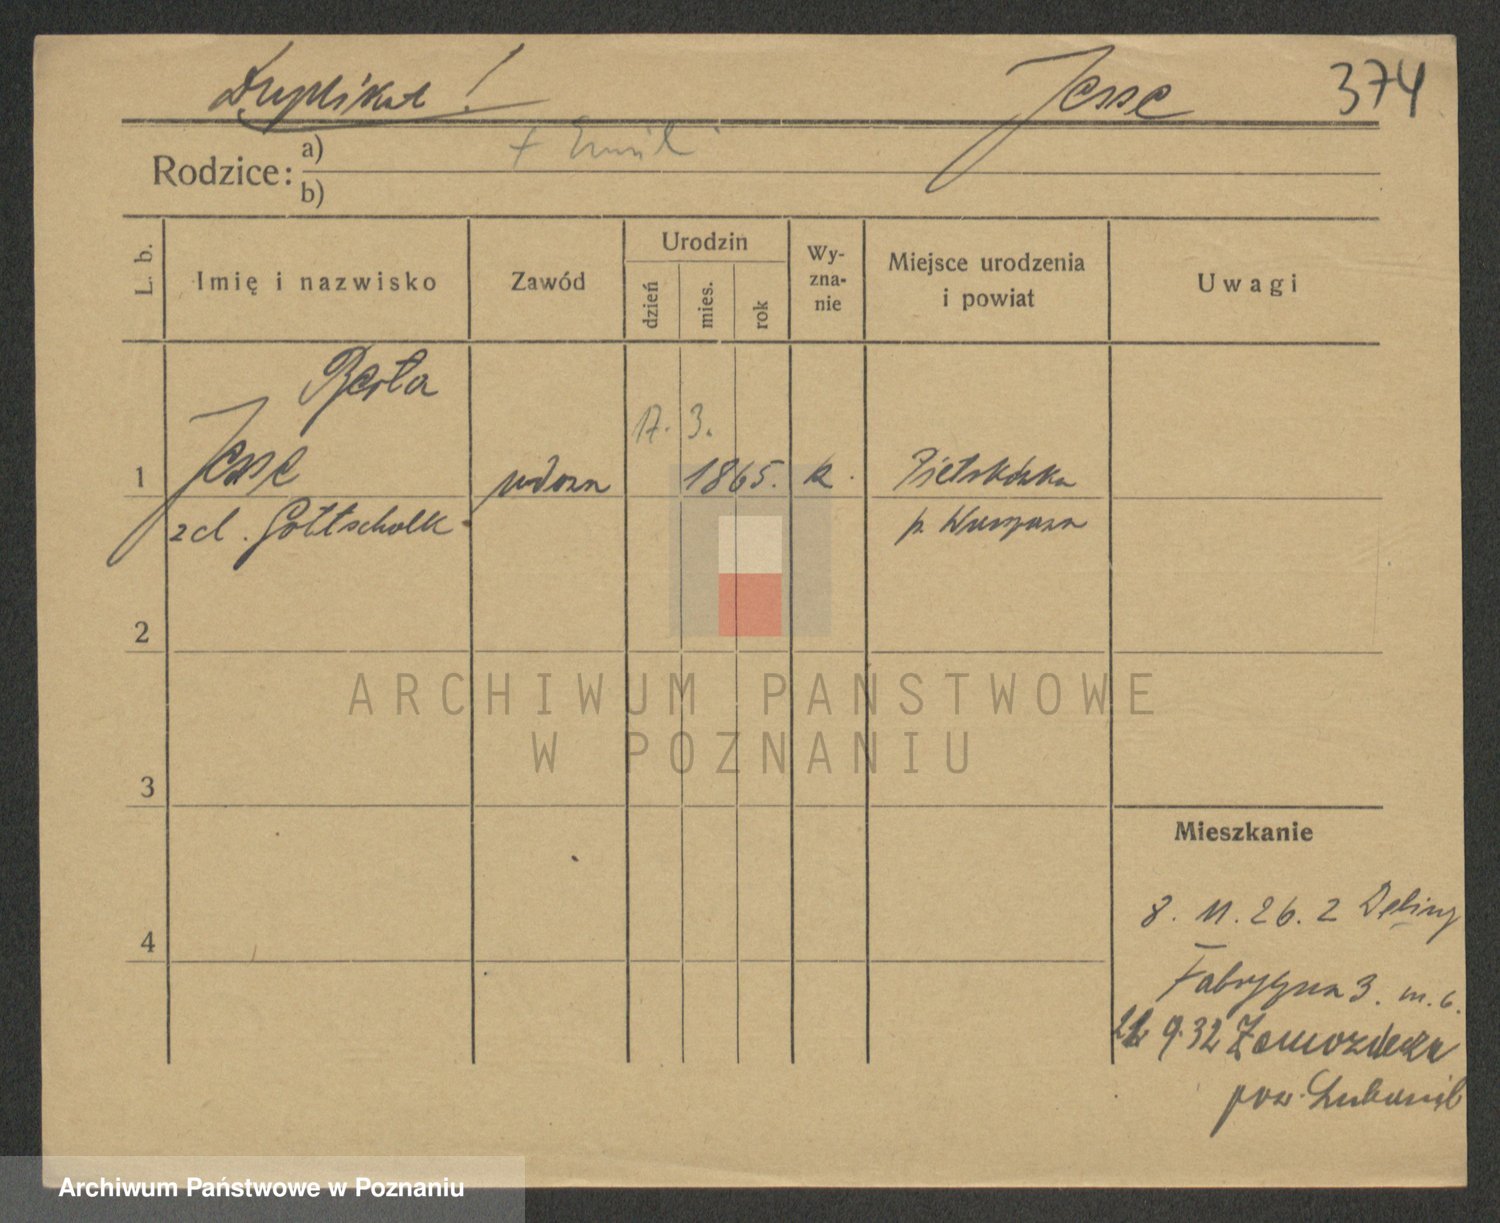 Duplikat! Jesse 374
Rodzice: a) + Emil
b)
L. b. Imię i nazwisko Zawód Urodzin dzień mies. rok Wy-zna-nie Miejsce urodzenia i powiat Uwagi
Berta
17. 3.
1 Jesse wdowa 1865. k.
zd. Gottschalk p. Warszawa
2
ARCHIWUM PAŃSTWOWE
W POZNANIU
3
Mieszkanie
8. 11. 26. z
4
Fabryczna 3. m. 6.
9. 32
pow.
Archiwum Państwowe w Poznaniu